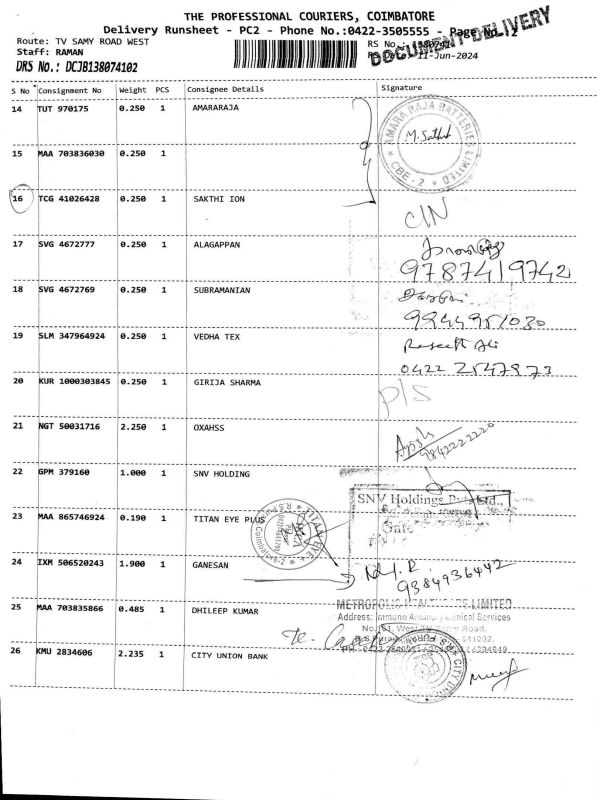 THE PROFESSIONAL COURIERS, COIMBATORE
Delivery Runsheet - PC2 - Phone No.:0422-3505555 - Page No.
DOCUMENT DELIVERY
Route: TV SAMY ROAD WEST
RS No.:
Staff: RAMAN
11-Jun-2024
DRS No.: DCJB138074102
S No Consignment No Weight PCS Consignee Details Signature
14 TUT 970175 0.250 1 AMARARAJA
AMARA RAJA BATTERIES LIMITED
CBE - 2
M. Sathish
15 MAA 703836030 0.250 1
16 TCG 41026428 0.250 1 SAKTHI ION
C/N
17 SVG 4672777 0.250 1 ALAGAPPAN
9787419742
18 SVG 4672769 0.250 1 SUBRAMANIAN
9944951030
19 SLM 347964924 0.250 1 VEDHA TEX
0422 2547973
20 KUR 1000303845 0.250 1 GIRIJA SHARMA
P/S
21 NGT 50031716 2.250 1 OXAHSS
9842222220
22 GPM 379160 1.000 1 SNV HOLDING
SNV Holdings Pvt. Ltd.,
Gate
23 MAA 865746924 0.190 1 TITAN EYE PLUS
TITAN EYE
R.S.Puram
Coimbatore-2
24 IXM 506520243 1.900 1 GANESAN
9384936442
25 MAA 703835866 0.485 1 DHILEEP KUMAR
METROPOLIS LIMITED
Address: Immuno Clinical Services
No. 51, West TV Samy Road,
R.S.Puram 641002.
26 KMU 2834606 2.235 1 CITY UNION BANK
CITY UNION
R.S. PURAM